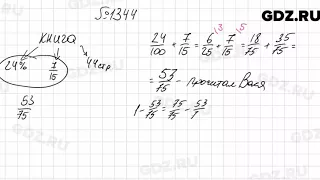 GDZ.RU
№1344
КНИГА
24% 7/15 44 стр.
53/75
24/100 + 7/15 = 6/25 + 7/15 = 18/75 + 35/75 =
= 53/75 - прочитал Вася
1 - 53/75 = 75/75 - 53/7